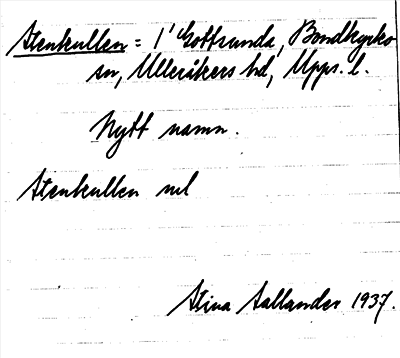 Stenkullen = 1' Gottsunda, Bondkyrko
sn, Ulleråkers hd, Upps. l.
Nytt namn.
Stenkullen ml
Stina Sallander 1937.